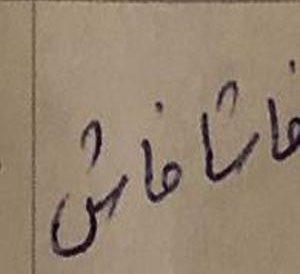 فاشا فاش